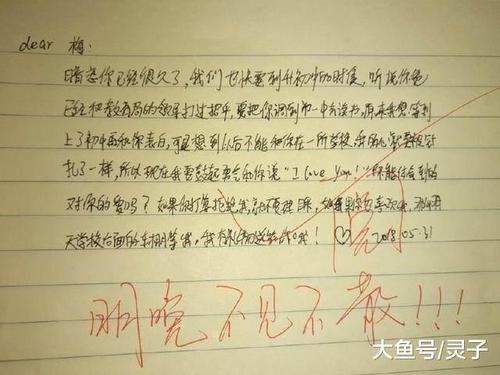 dear 梅:
暗恋你已经很久了,我们也快要到升初中的时候,听说你爸
已经把教育局的领导打过招呼,要把你调到市一中去读书,原来我想等到
上了初中再和你表白,可是想到以后不能和你在一所学校,我的心就要被针
扎了一样,所以现在我要鼓起勇气和你说"I love You!"你能体会到我
对你的爱吗?如果你打算拒绝我就不要理睬,如果你也喜欢我,
天学校后面的 等我,我有礼物送给你哦!♡ 2018.05.31
阅
明晚不见不散!!!
大鱼号/灵子